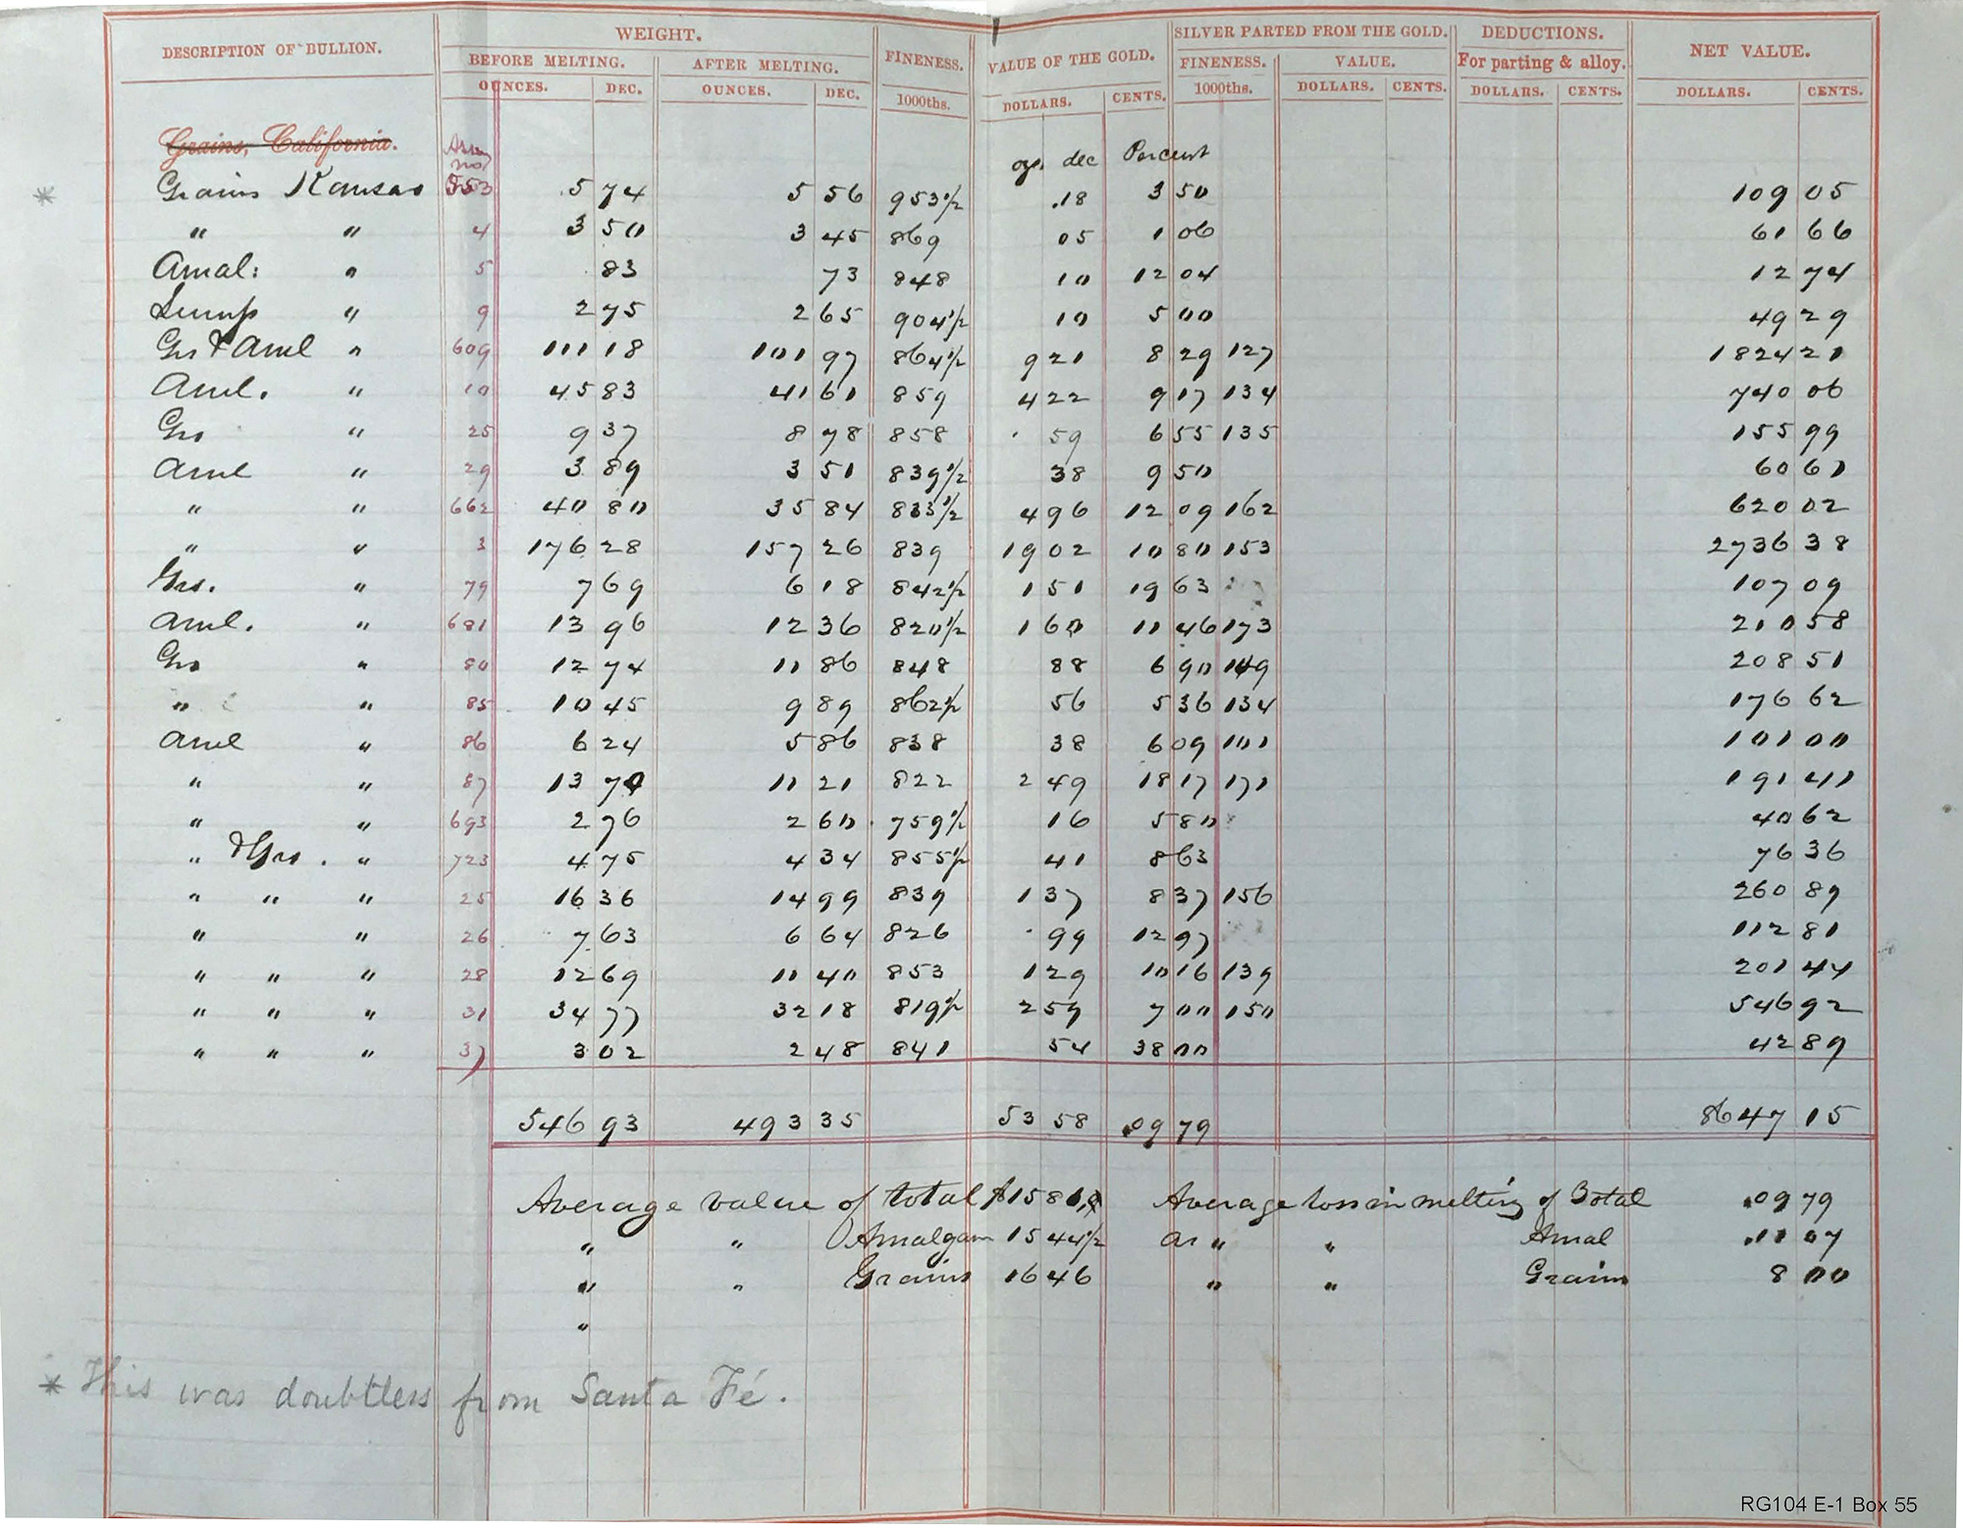 DESCRIPTION OF BULLION. WEIGHT. FINENESS. VALUE OF THE GOLD. SILVER PARTED FROM THE GOLD. DEDUCTIONS. NET VALUE.
BEFORE MELTING. AFTER MELTING. FINENESS. VALUE. For parting & alloy.
OUNCES. DEC. OUNCES. DEC. 1000ths. DOLLARS. CENTS. 1000ths. DOLLARS. CENTS. DOLLARS. CENTS. DOLLARS. CENTS.
Grains, California.
Assay no oz. dec Percent
* Grains Kansas 553 5 74 5 56 953 1/2 .18 3 50 109 05
" " 4 3 50 3 45 869 05 1 06 61 66
Amal: " 5 83 73 848 10 12 04 12 74
" 9 2 75 2 65 904 1/2 10 5 00 49 29
Grs & Aml " 609 111 18 101 97 864 1/2 9 21 8 29 127 1824 21
Aml. " 10 45 83 41 61 859 4 22 9 17 134 740 06
Grs " 25 9 37 8 78 858 59 6 55 135 155 99
Aml " 29 3 89 3 51 839 1/2 38 9 50 60 61
" " 662 40 80 35 84 833 1/2 4 96 12 09 162 620 02
" " 3 176 28 157 26 839 19 02 10 80 153 2736 38
Grs. " 79 7 69 6 18 842 1/2 1 51 19 63 107 09
Aml. " 681 13 96 12 36 820 1/2 1 60 11 46 173 210 58
Grs " 80 12 74 11 86 848 88 6 90 149 208 51
" " 85 10 45 9 89 862 1/2 56 5 36 134 176 62
Aml " 86 6 24 5 86 838 38 6 09 101 101 00
" " 87 13 70 11 21 822 2 49 18 17 171 191 41
" " 693 2 76 2 60 759 1/2 16 5 80 40 62
" & Grs. " 723 4 75 4 34 855 1/2 41 8 63 76 36
" " " 25 16 36 14 99 839 1 37 8 37 156 260 89
" " 26 7 63 6 64 826 99 12 97 112 81
" " " 28 12 69 11 40 853 1 29 10 16 139 201 44
" " " 31 34 77 32 18 819 1/2 2 59 7 00 150 546 92
" " " 37 3 02 2 48 841 54 38 00 42 89
546 93 493 35 53 58 .09 79 8647 15
Average value of total $1581, Average loss in melting of Total .09 79
" " Amalgam 1544 1/2 " " Amal .11 07
" " Grains 1646 " " Grains 8 00
"
* This was doubtless from Santa Fé.
RG104 E-1 Box 55